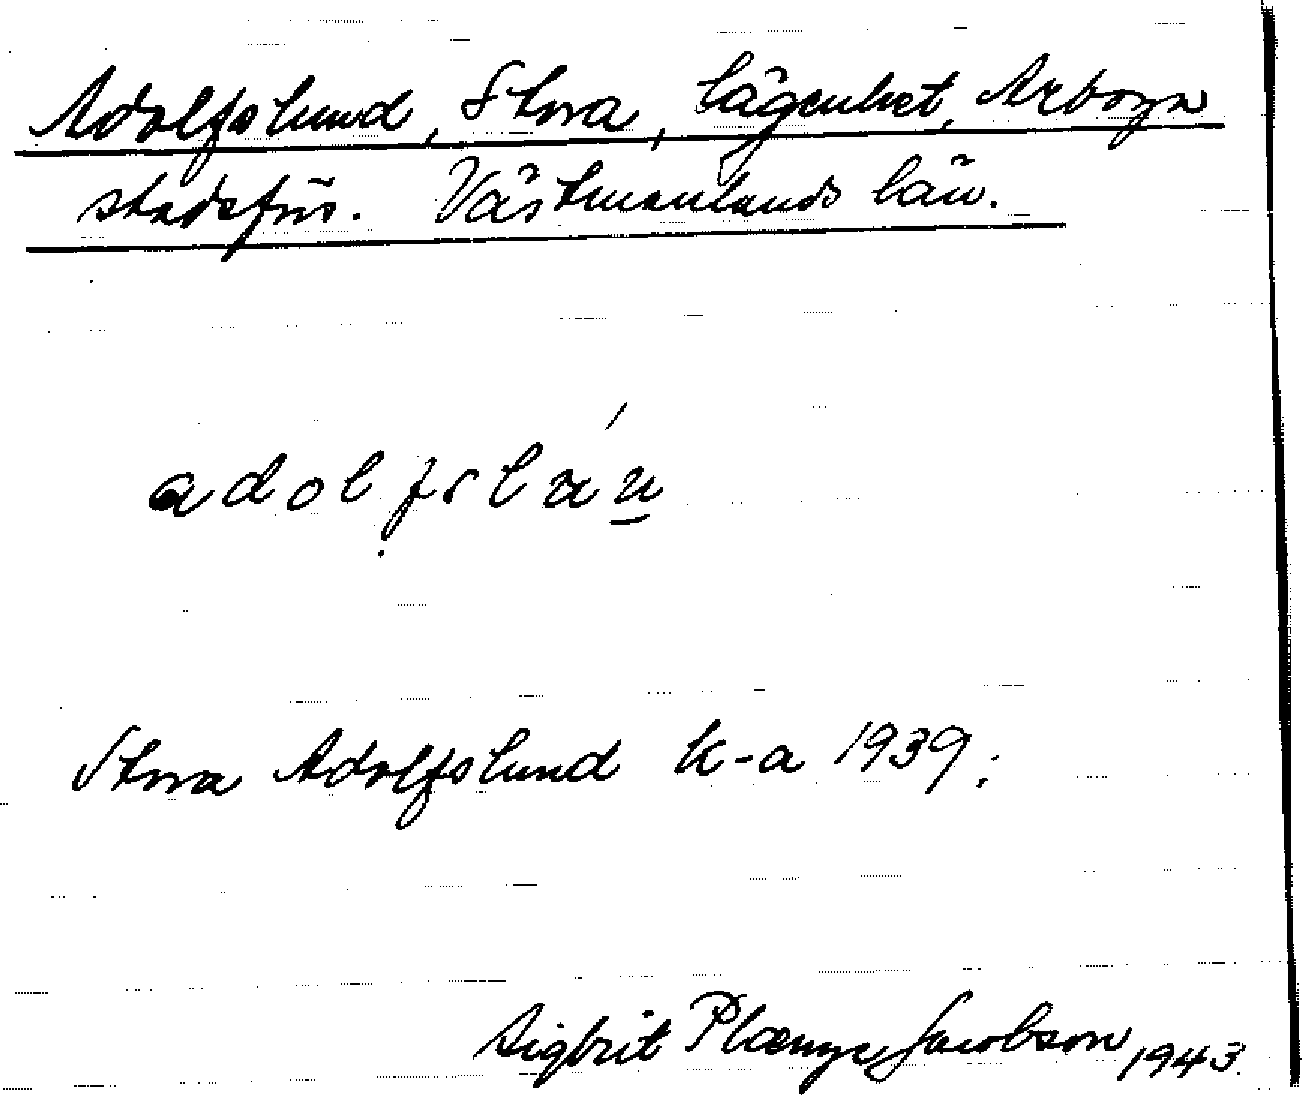 Adolfslund, Stora, lägenhet, Arboga
stadsförs. Västmanlands län.
adolfslán
Stora Adolfslund k-a 1939;
Sigbrit Plænge Jacobson 1943.